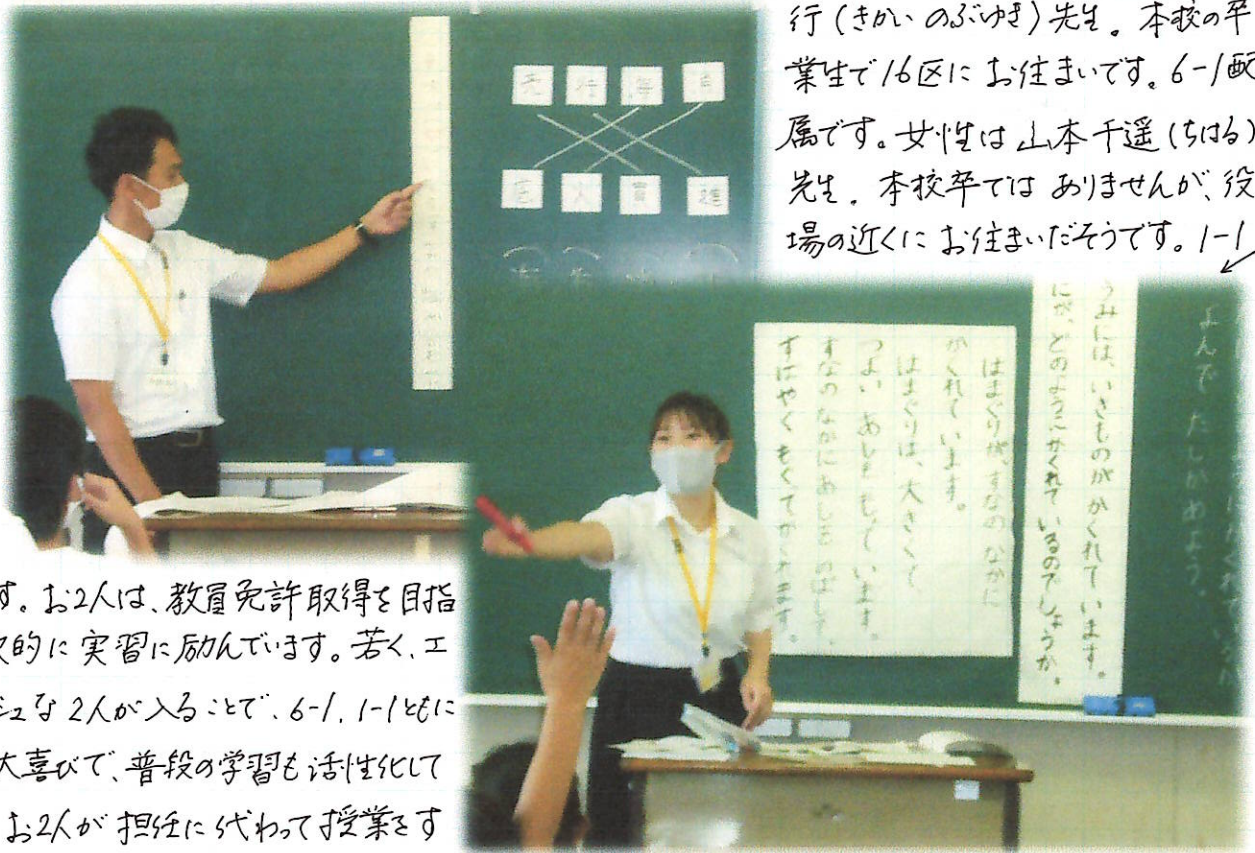 行(きかい のぶゆき)先生。本校の卒
業生で16区に お住まいです。6-1配
属です。女性は 山本千遥(ちはる)
先生。本校卒では ありませんが、役
場の近くに お住まいだそうです。1-1
よんで たしかめよう。
うみには、いきものが かくれています。
どのように かくれて いるのでしょうか。
はまぐりが、すなの なかに
かくれて います。
はまぐりは、大きくて
つよい あしを もって います。
すなの なかに あしを のばして、
すばやく もぐって かくれます。
す。お2人は、教員免許取得を目指
的に 実習に励んでいます。若く、エ
シュな 2人が入ることで、6-1、1-1ともに
大喜びで、普段の学習も活性化して
お2人が 担任に代わって授業をす